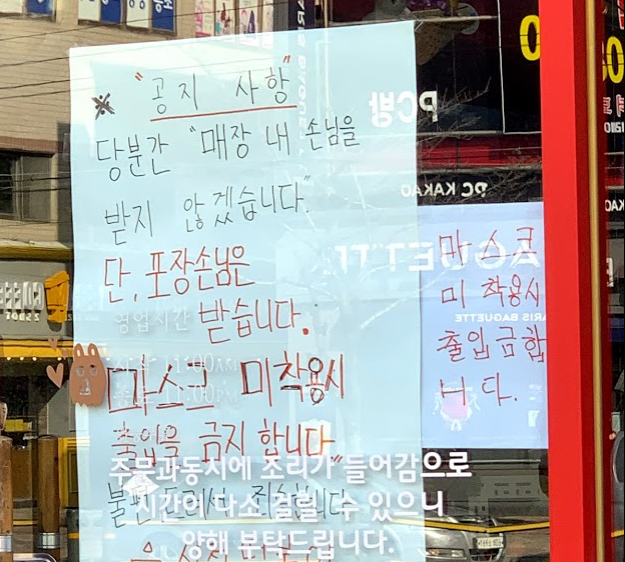 ※ "공지 사항"
당분간 "매장 내 손님을
받지 않겠습니다"
단, 포장손님은
영업시간
받습니다.
11:00AM
11:00PM
마스크 미착용시
출입을 금지 합니다"
주문과동시에 조리가 들어감으로
불편드려서 죄송합니다
시간이 다소 걸릴 수 있으니
양해 부탁드립니다.
마스크
미 착용시
출입금합
니다.
PC방
PC KAKAO
AGUETTE
ARIS BAGUETTE